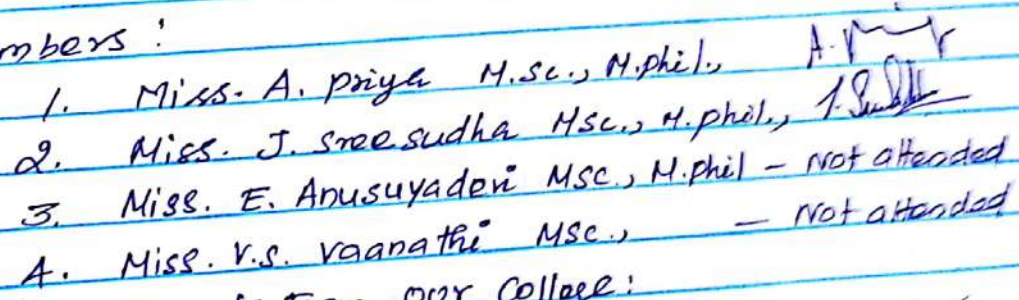 mbers :
1. Miss. A. priya M.Sc., M.phil.,
2. Miss. J. Sree sudha MSc., M.phil.,
3. Miss. E. Anusuyadevi MSc., M.phil - Not attended
4. Miss. V.S. Vaanathi MSc., - Not attended
our College: